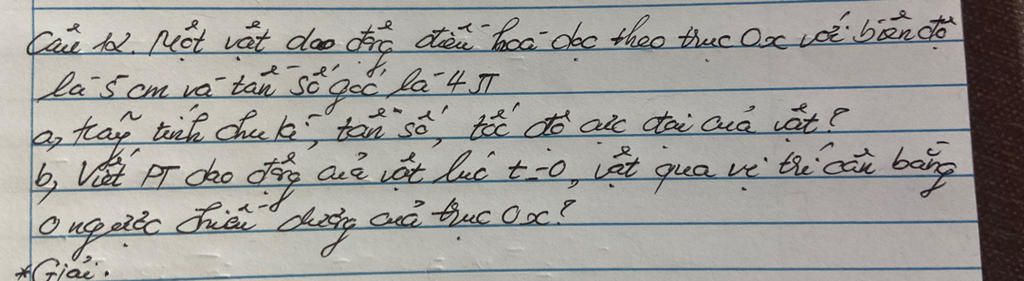 Câu 12. Một vật dao động điều hoà dọc theo trục Ox với biên độ
là 5 cm và tần số góc là 4π
a, Hãy tính chu kì, tần số, tốc độ cực đại của vật?
b, Viết PT dao động của vật lúc t=0, vật qua vị trí cân bằng
O ngược chiều dương của trục Ox?
*Giải: